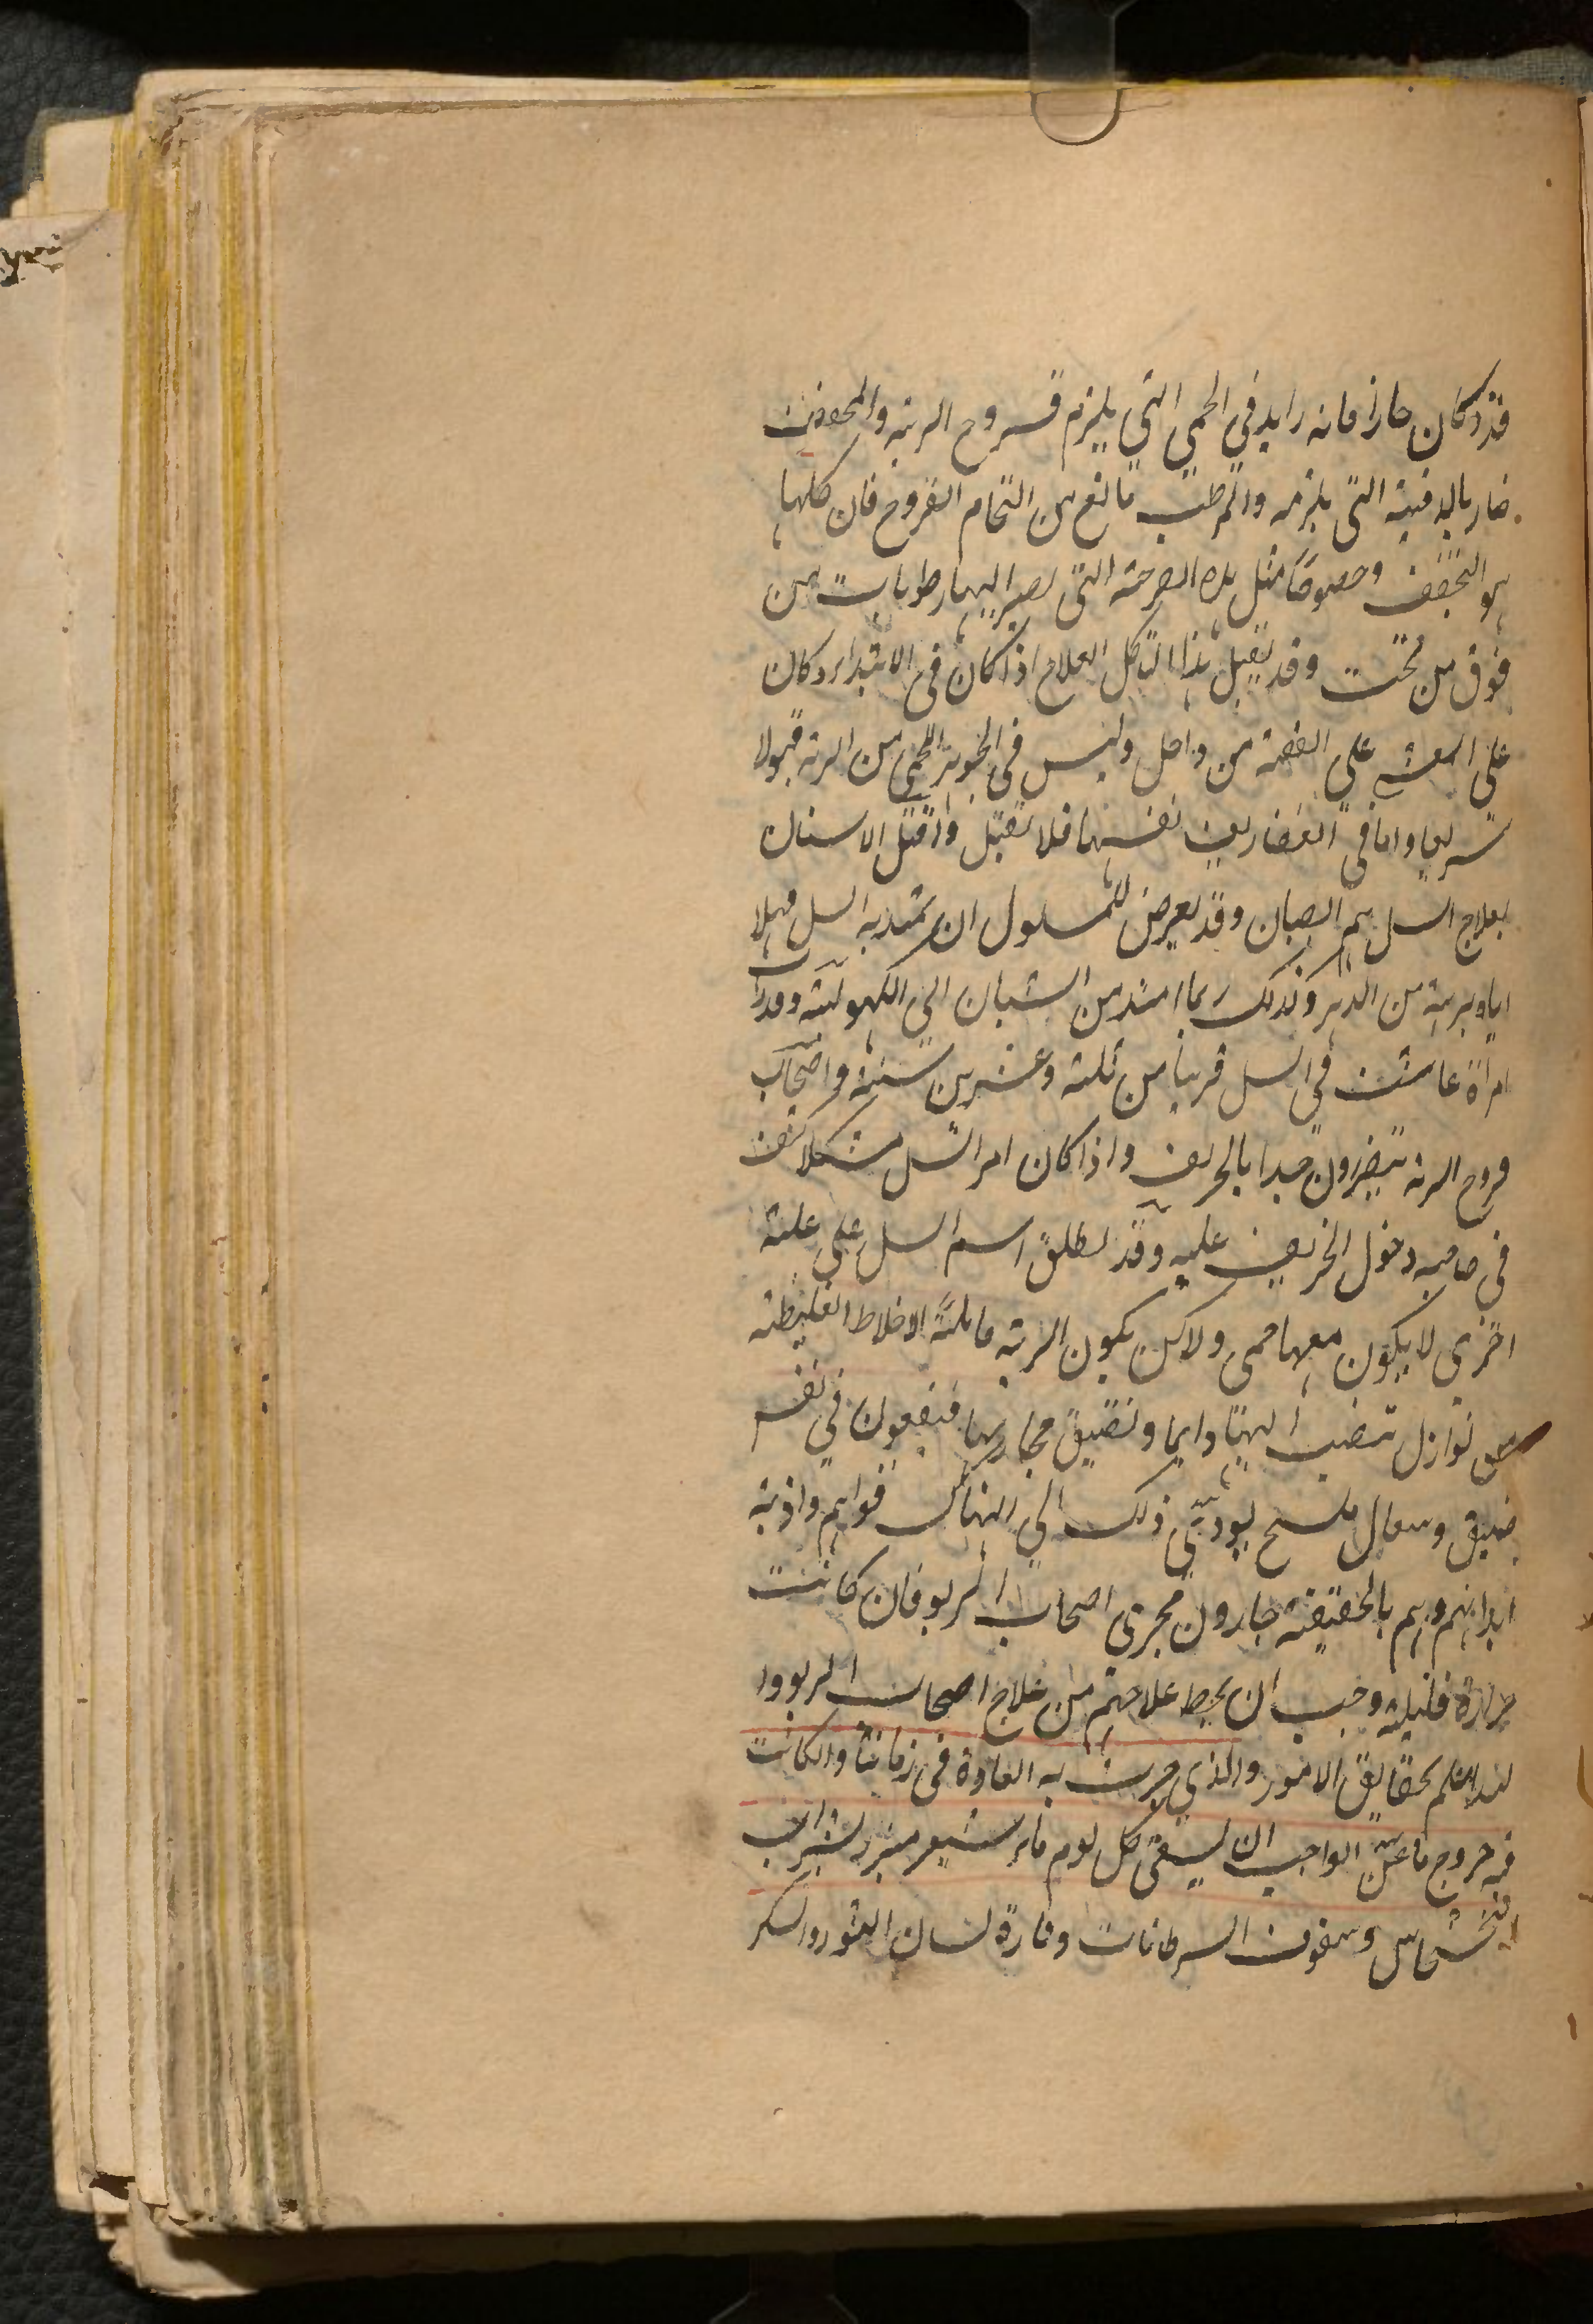 فذو كان حارا فانه زايد في الحمى التي يلزم قروح الرئة والمجفف
ضار بالدقية التي يلزمه والمرطب مانع من التحام القروح فان كلها
هو التجفف وخصوصًا مثل هذه القرحة التي يصير اليها رطوبات من
فوق من تحت وقد يقبل هذا التاكل العلاج اذا كان في الابتداء وكان
على الغشاء على القصبة من داخل وليس في الجوهر اللحمي من الرئة قبولا
سريعا واما في الغضاريف نفسها فلا تقبل واقبل الاسنان
بعلاج السل هم الصبيان وقد يعرض للمسلول ان يمتد به السل مهلا
اياه برهة من الدهر وكذلك ربما امتد من الشبان الى الكهولة وقد رأيت
امراة عاشت في السل قريبا من ثلثة وعشرين سنة واصحاب
قروح الرئة يتضررون جدا بالخريف واذا كان امر السل مشكلا كشف
في صاحبه دخول الخريف عليه وقد يطلق اسم السل على علة
اخرى لا يكون معها حمى ولاكن يكون الرئة قابلة الاخلاط الغليظة
من نوازل تنصب اليها دايما وتضيق مجاريها فيقعون في نفس
ضيق وسعال ملح يودّي ذلك الى انهاك قواهم واذبة
ابدانهم وهم بالحقيقة جارون مجرى اصحاب الربو فان كانت
حرارة قليلة وجب ان يخلط علاجهم من علاج اصحاب الربو وا
لله اعلم بحقايق الامور والذي جرت به العادة في زماننا وان كانت
فيه خروج ما عن الواجب ان يسقى كل يوم ماء شعير مبزر بشراب
الخشخاش وسفوف السرطانات وتارة لسان الثور والسكر